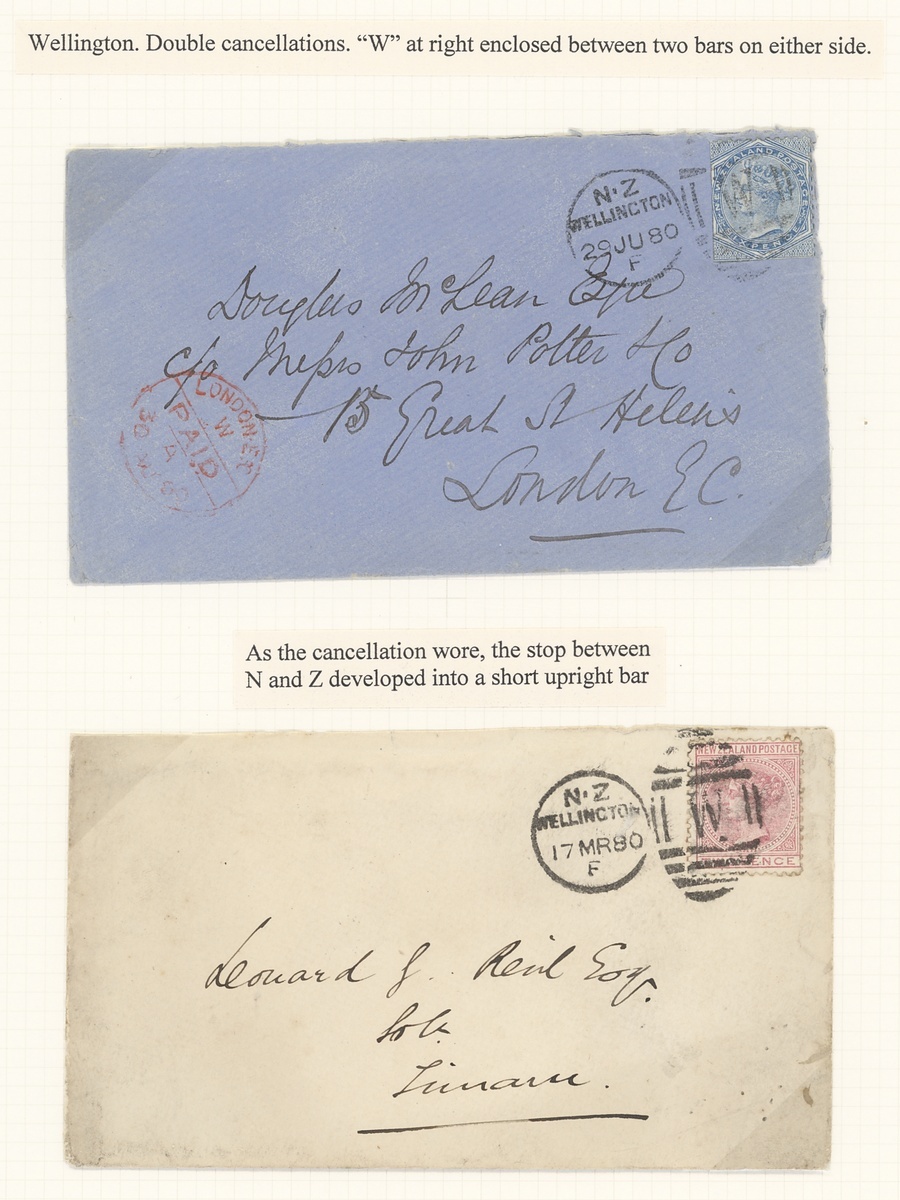 Wellington. Double cancellations. “W” at right enclosed between two bars on either side.
N·Z
WELLINGTON
29 JU 80
F
NEW ZEALAND POSTAGE
SIX PENCE
Douglas McLean Esqre
c/o Messrs John Potter & Co
15 Great St Helens
London E.C.
LONDON E.C
W
PAID
A
80
As the cancellation wore, the stop between
N and Z developed into a short upright bar
N·Z
WELLINGTON
17 MR 80
F
NEW ZEALAND POSTAGE
W
PENCE
Leonard G. Reid Esq.
Solr.
Timaru.